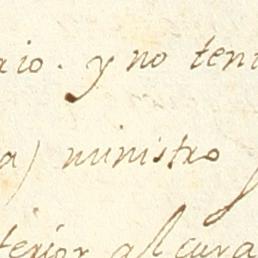 aio. y no teni
a) ministro
terior al cura